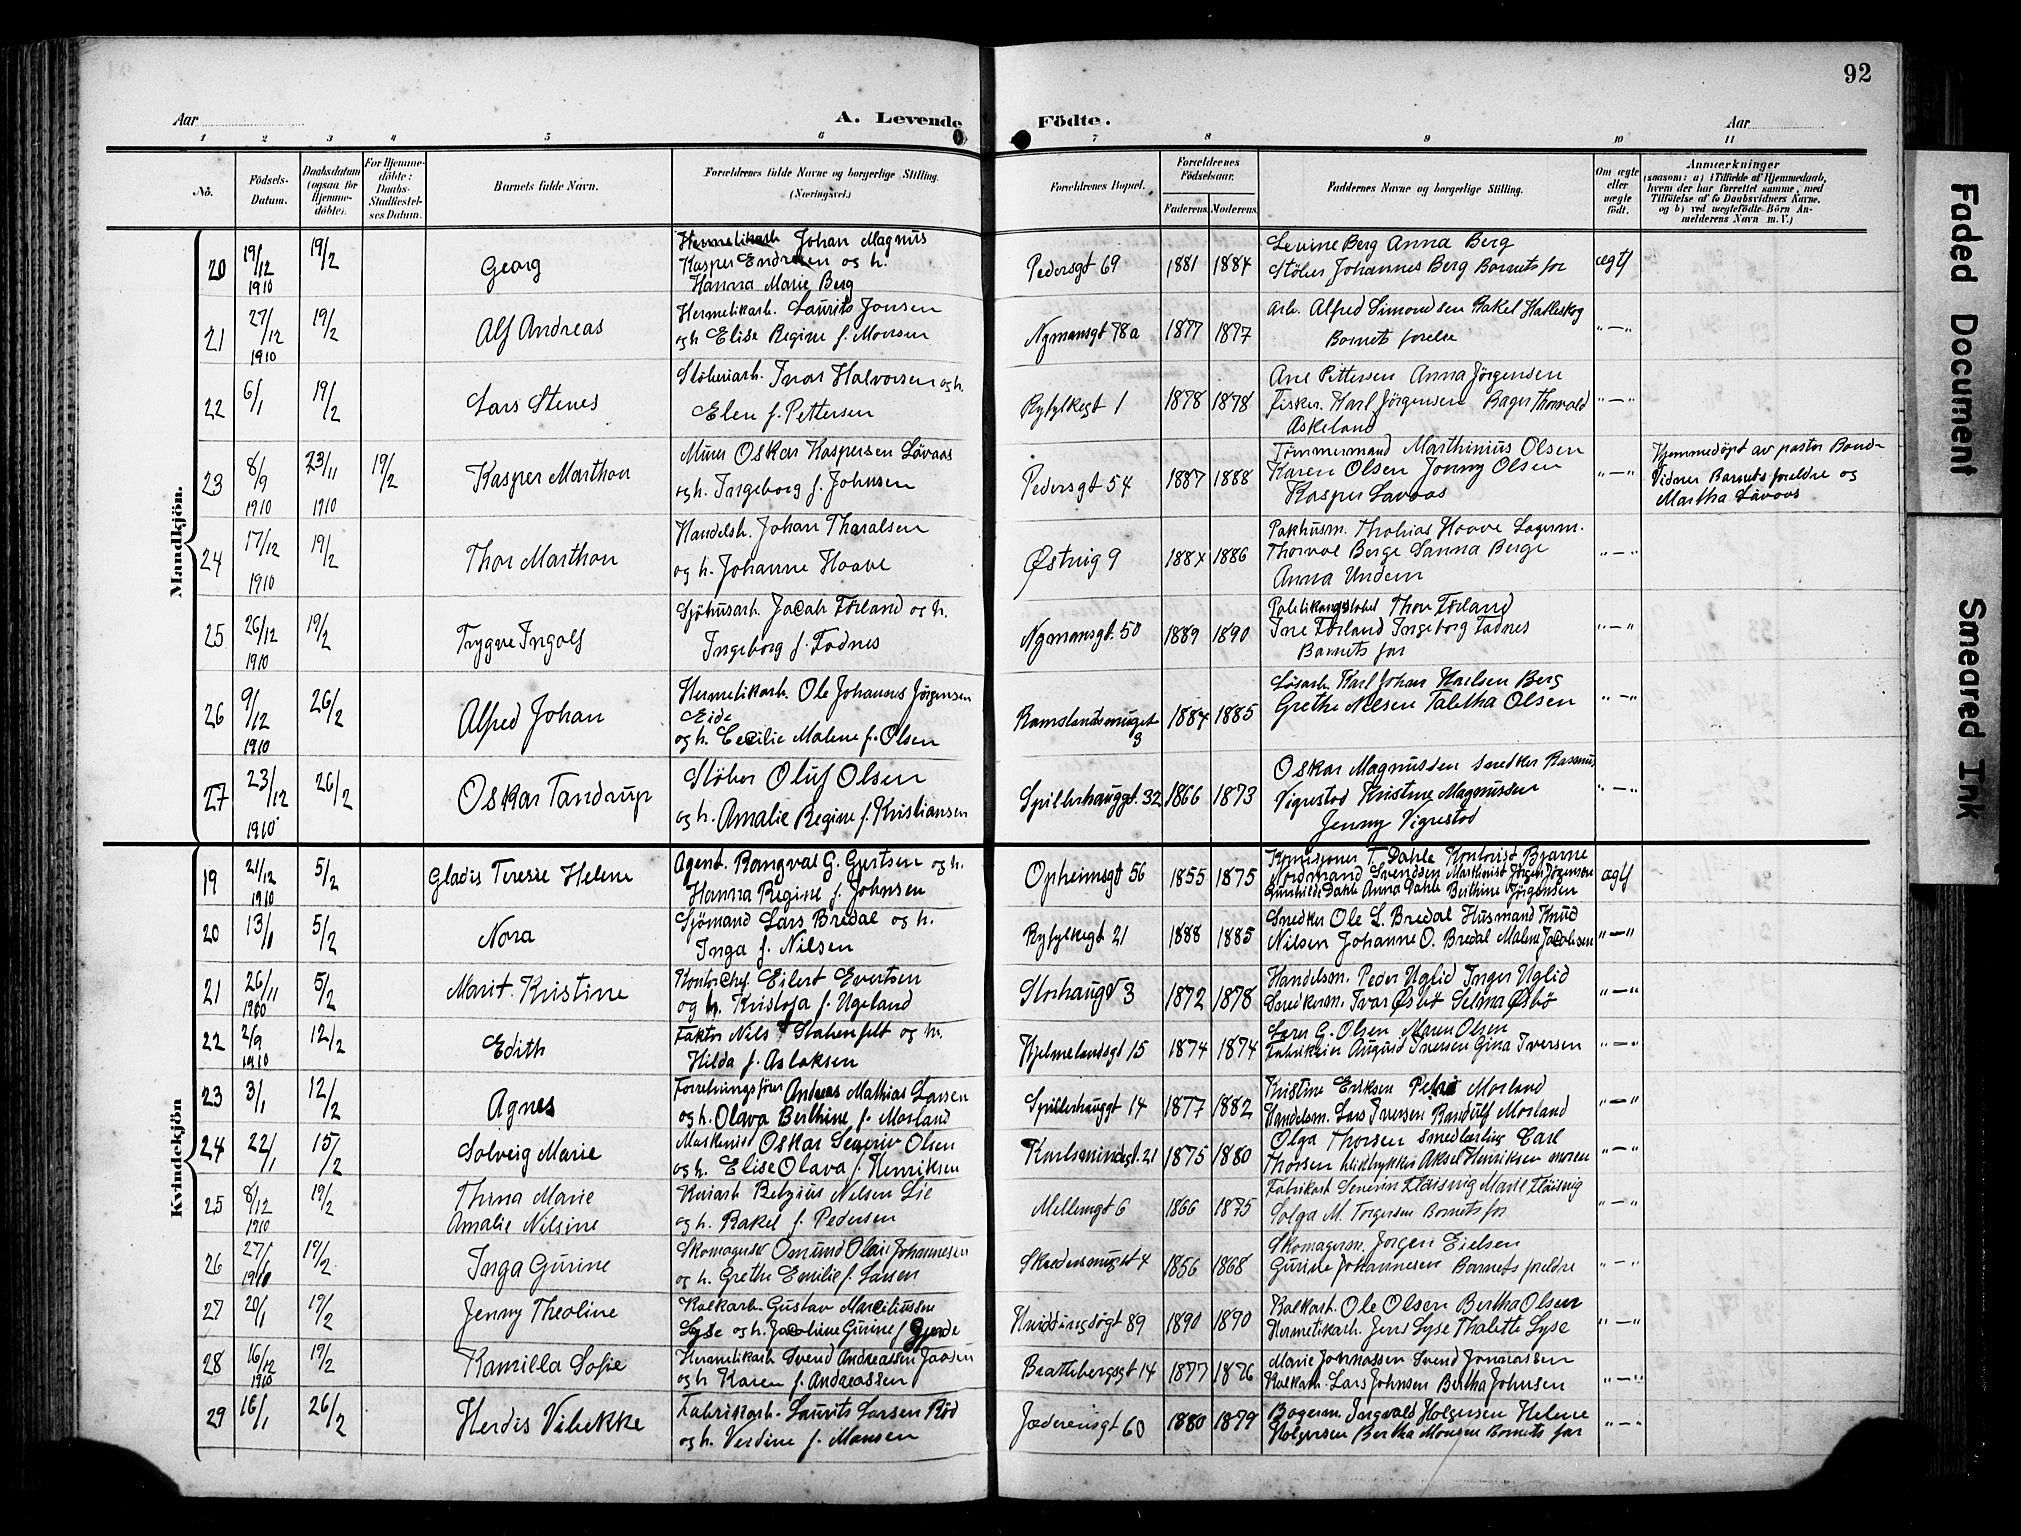 92
Aar
A. Levende Födte.
Aar
1 2 3 4 5 6 7 8 9 10 11
No.
Födsels-Datum.
Daabsdatum (ogsaa for Hjemme-döbte).
For Hjemme-döbte: Daabs-Stadfæstel-ses Datum.
Barnets fulde Navn.
Forældrenes fulde Navne og borgerlige Stilling. (Næringsvei.)
Forældrenes Bopæl.
Forældrenes Födselsaar.
Faderens. Moderens.
Faddernes Navne og borgerlige Stilling.
Om ægte eller uægte födt.
Anmærkninger
(saasom: a) i Tilfælde af Hjemmedaab, hvem der har forrettet samme, med Tilföielse af to Daabsvidners Navne. og b) ved uægtefödte Börn An-melderens Navn m. V.)
Mandkjön.
20 19/12 1910 19/2 Georg
Hermetikarb. Johan Magnus
Kasper Endresen og h.
Hanna Marie Berg
Pedersgt 69 1881 1884
Levine Berg Anna Berg
Støber Johannes Berg Barnets far
ægtf
21 27/12 1910 19/2 Alf Andreas
Hermetikarb. Laurits Jonsen
og h Elise Regine f. Monsen
Nymansgt 78a 1877 1877
Arb. Alfred Simondsen Rakel Hatleskog
Barnets forelse
"—"
22 6/1 19/2 Lars Stenes
Støberiarb. Ivar Halvorsen og h.
Elen f. Pettersen
Ryfylkegt 1 1878 1878
Ane Pettersen Anna Jörgensen
Fisker. Karl Jörgensen Bager Thorvald
Askeland
"—"
23 8/9 1910 23/11 1910 19/2 Kasper Marthon
Murer Oskar Kaspersen Lävaas
og h. Ingeborg f. Johnsen
Pedersgt 54 1887 1888
Tømmermand Marthinius Olsen
Karen Olsen Jonny Olsen
Kasper Lavaas
"—"
Hjemmedöpt av pastor Bond-
Vidner Barnets foreldre og
Martha Lävaas
24 17/12 1910 19/2 Thor Marthon
Handelsb. Johan Tharalsen
og h. Johanne Haave
Østvig 9 1884 1886
Pakhusm. Thobias Haave Lagerm.
Thorval Berge Sanna Berge
Anna Undem
"—"
25 26/12 1910 19/2 Trygve Ingolf
Sjöhusarb. Jacob Förland og h.
Ingeborg f. Fodnes
Nymansgt. 50 1889 1890
Politikonstabel Thor Förland
Ine Förland Ingeborg Fodnes
Barnets far
"—"
26 9/12 1910 26/2 Alfred Johan
Hermetikarb. Ole Johannes Jörgensen
Eide
og h. Cecilie Malene f. Olsen
Ramslandsmuget 3 1884 1885
Lösarb. Karl Johan Karlsen Berg
Grethe Nilsen Talitha Olsen
"—"
27 23/12 1910 26/2 Oskar Tandrup
Støber Oluf Olsen
og h. Amalie Regine f. Kristiansen
Spillerhauggt. 32 1866 1873
Oskar Magnussen snedker Rasmus
Vigrestad Kristine Magnussen
Jenny Vigrestad
"—"
Kvindekjön
19 21/12 1910 5/2 Gladis Teresie Helene
Agent. Rangval G. Gjertsen og h.
Hanna Regine f. Johnsen
Opheimsgt 56 1855 1875
T. Dahle Kontorist Bjarne
Nordmand Svendsen Maskinist Jörgen Jörgensen
Gunhilde Dahle Anna Dahle Berthine Jörgensen
ægtf
20 13/1 5/2 Nora
Sjömand Lars Bredal og h.
Inga f. Nilsen
Ryfylkegt 21 1888 1885
Snedker Ole L. Bredal Husmand Knud
Nilsen Johanne O. Bredal Malene Jacobsen
"—"
21 26/11 1910 5/2 Marit Kristine
Kontorchef Eilert Evertsen
og h. Kristofa f. Ugeland
Storhaugt 3 1872 1878
Handelsm. Peder Uglid Inger Uglid
Snedkerm. Ivar Øsbö Selma Øsbö
"—"
22 2/9 1910 12/2 Edith
Faktor Nils Stabenfelt og h.
Hilda f. Aslaksen
Hjelmelandsgt 15 1874 1874
Lars G. Olsen Maren Olsen
Fabrikeier August Iversen Gina Iversen
"—"
23 3/1 12/2 Agnes
Forretningsförer Andreas Mathias Larsen
og h. Olava Berthine f. Morland
Spillerhauggt 14 1877 1882
Kristine Eriksen Morland
Handelsm. Lars Iversen Randulf Morland
"—"
24 22/1 15/2 Solveig Marie
Maskinist Oskar Severin Olsen
og h. Elise Olava f. Henriksen
Karlsmindegt. 21 1875 1880
Olga Thorsen smedlærling Carl
Thorsen blikthykker Aksel Henriksen moren
"—"
25 8/12 1910 19/2 Thina Marie
Amalie Nilsine
Betzius Nilsen Lie
og h. Rakel f. Pedersen
Mellemgt 6 1866 1875
Fabrikarb Severin Flaisvig Marie Flaisvig
Solga M. Torgersen Barnets far
"—"
26 27/1 1910 19/2 Inga Gurine
Skomagersv Omund Olai Johannesen
og h. Grethe Emilie f. Larsen
Skredersmuget 4 1856 1868
Skomagerm. Jorgen Eielsen
Gurine Johannesen Barnets foreldre
"—"
27 20/1 19/2 Jenny Theoline
Kalkarb. Gustav Marciliussen
Lyse og h. Jacobine Gurine f Gjerde
Hvidtingsögt 89 1890 1890
Kalkarb. Ole Olsen Bertha Olsen
Hermetikarb. Jens Lyse Thalette Lyse
"—"
28 16/12 1910 19/2 Kamilla Sofie
Hermetikarb Svend Andreassen Jaasen
og h Karen f. Andreassen
Brattebergsgt 14 1877 1876
Marie Johnassen Svend Jonnassen
Kalkarb. Lars Johnsen Bertha Johnsen
"—"
29 16/1 26/2 Herdis Vibekke
Fabrikarb. Laurits Larsen Röd
og h. Verdine f. Monsen
Jæderensgt 60 1880 1879
Bagerm. Ingvald Holgersen Helene
Holgersen Bertha Monsen Barnets far
"—"
Faded Document
Smeared Ink